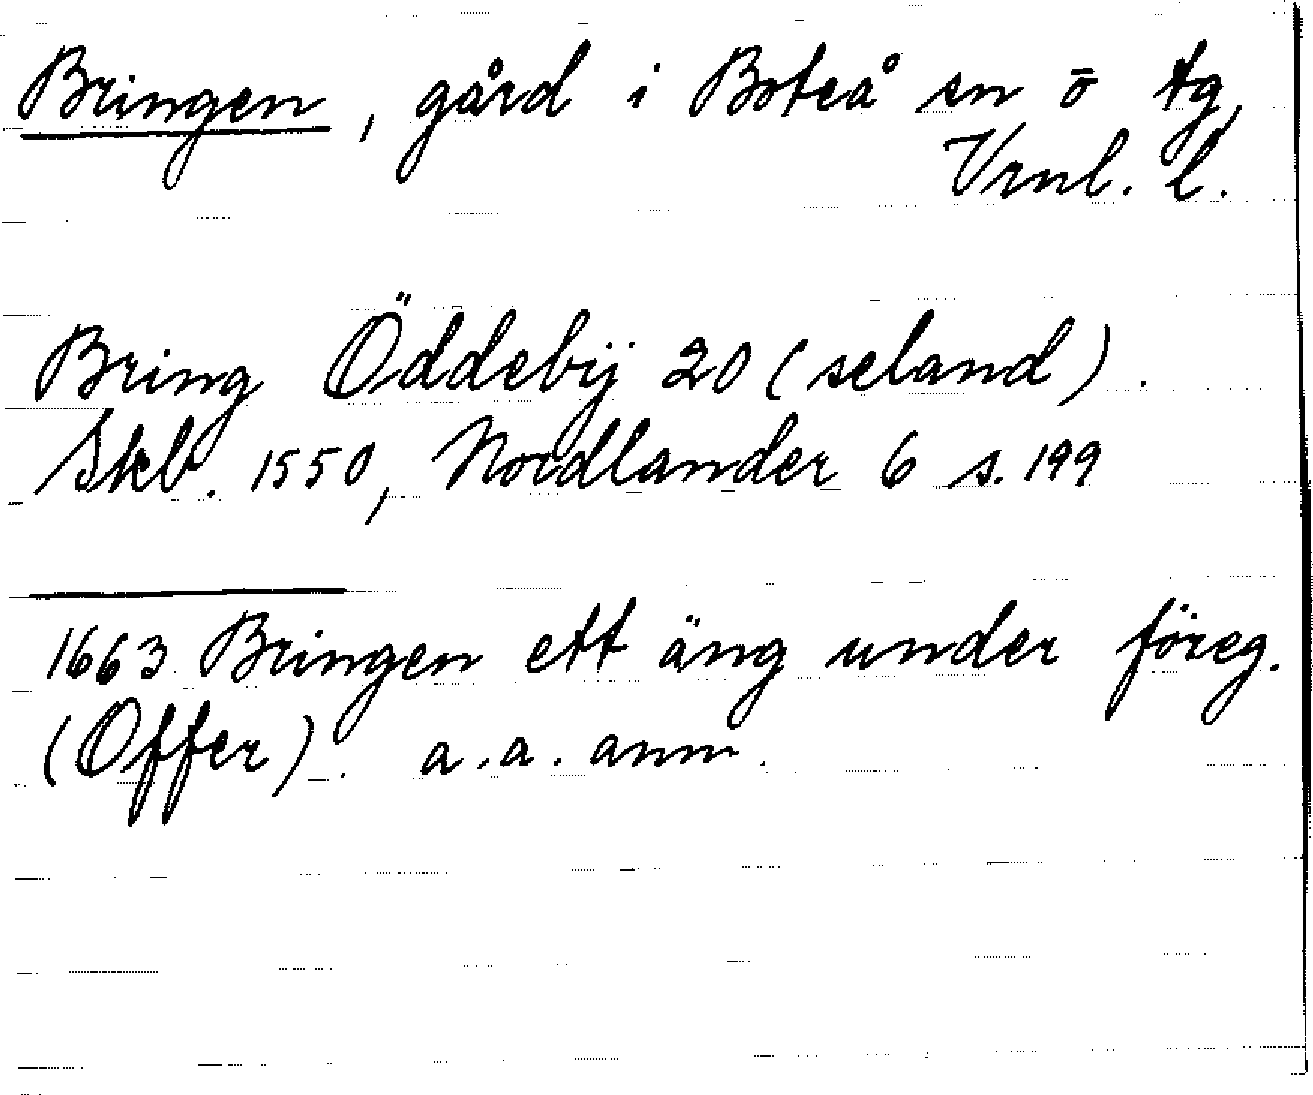 Bringen, gård i Boteå sn ö tg,
Vrnl. l.
Bring Öddebÿ 20 (seland).
Skb. 1550, Nordlander 6 s. 199
1663 Bringen ett äng under föreg.
(Offer). a.a. anm.